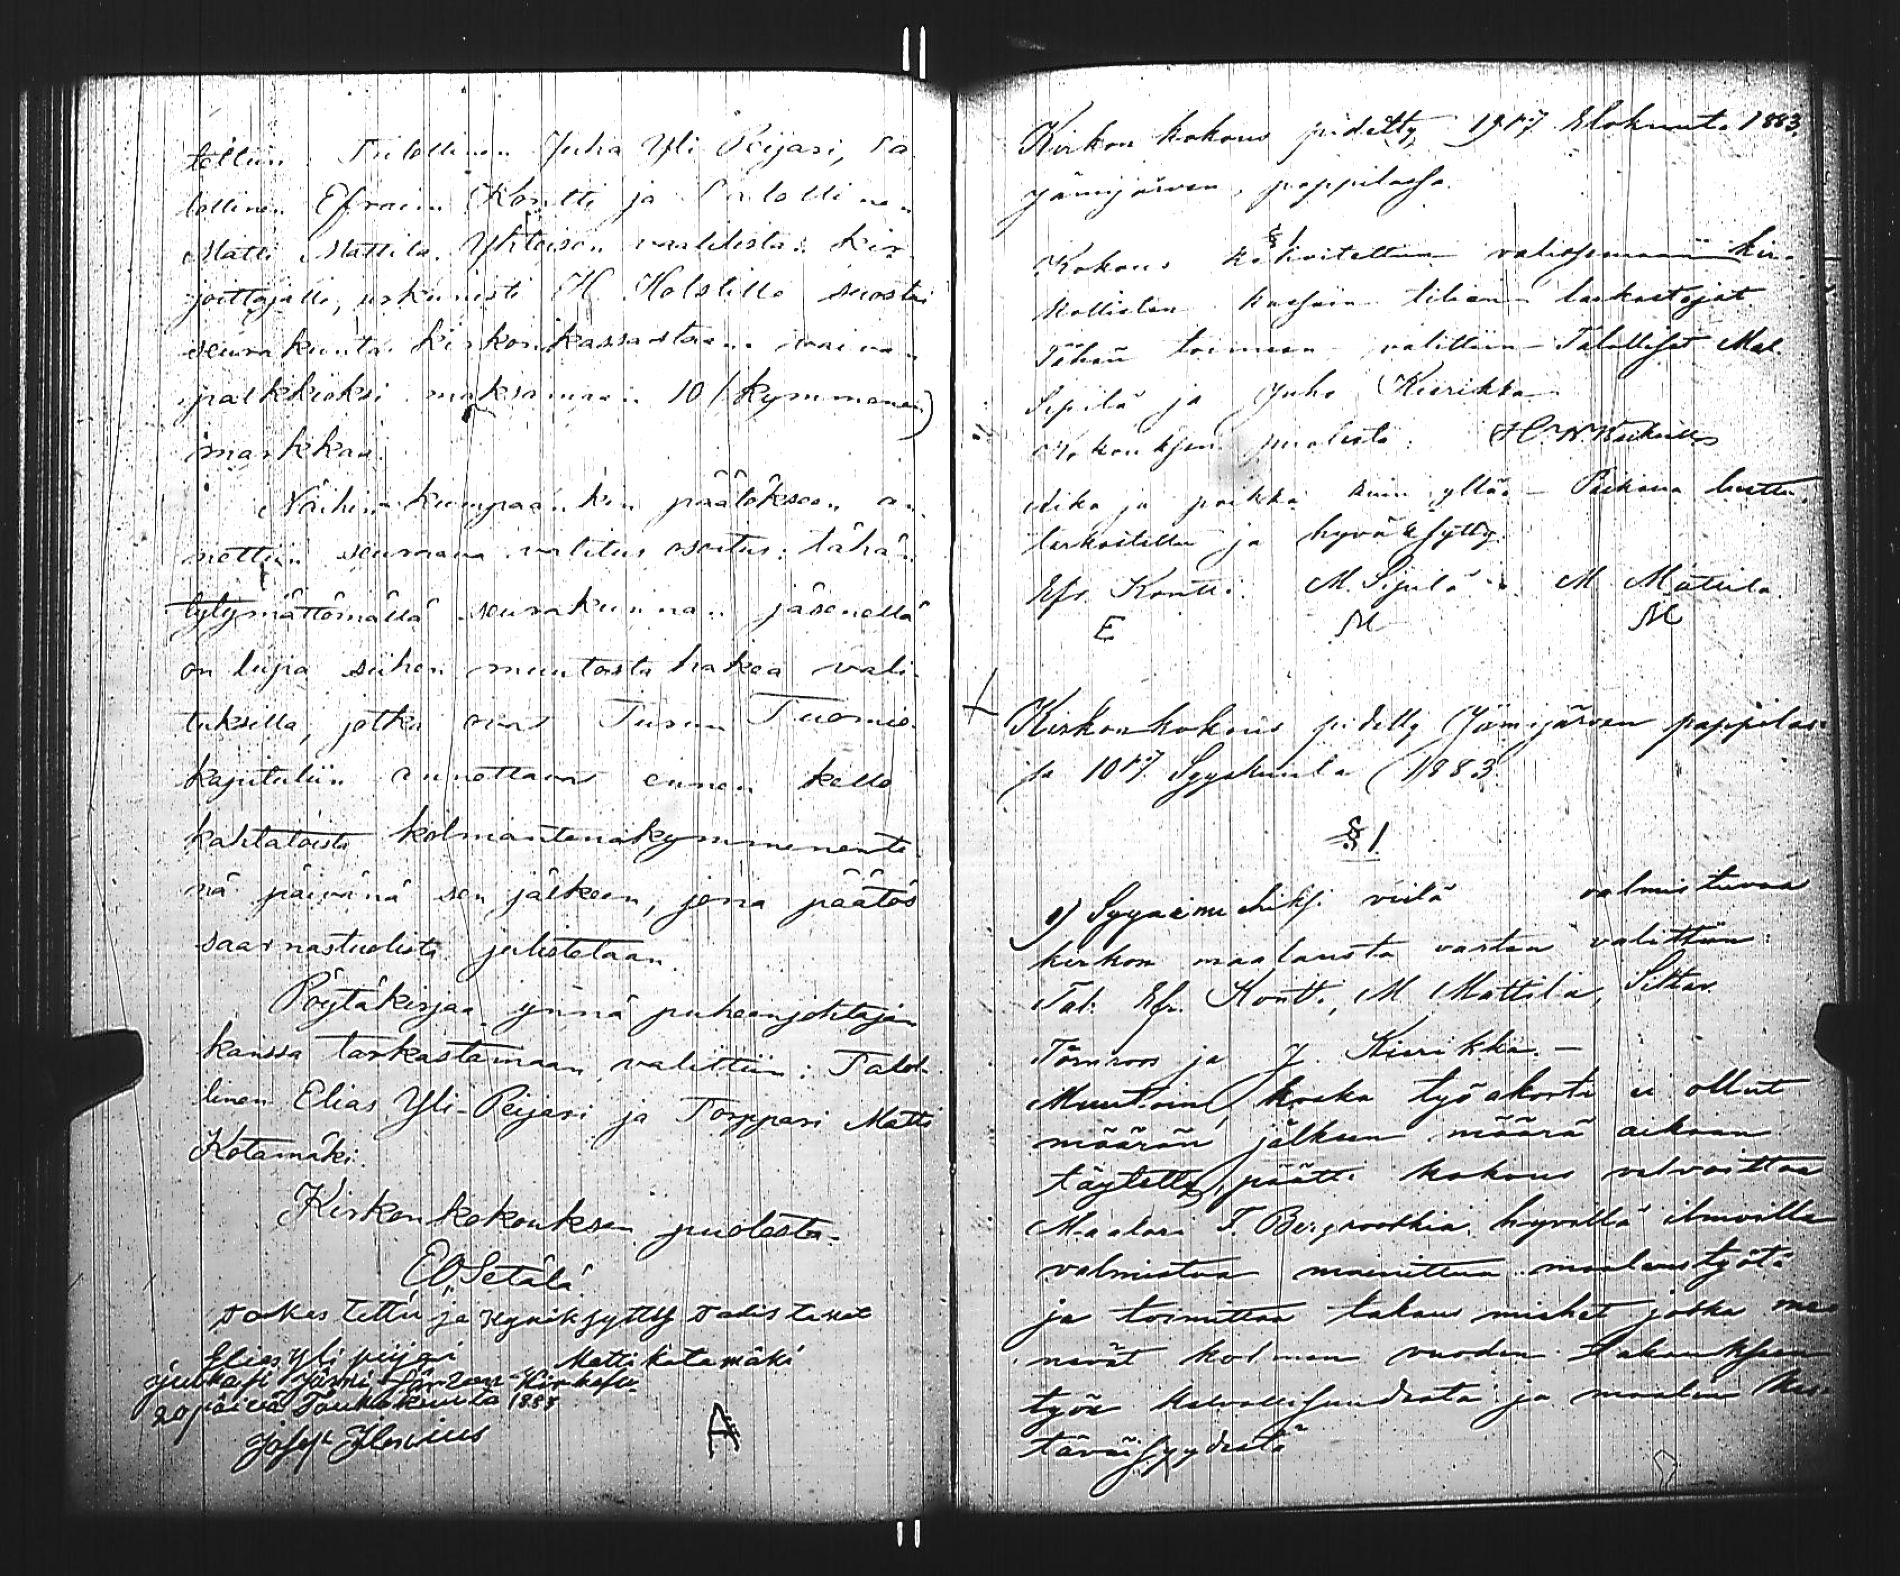 tettiin Talollinen Juha Yli Peijari, Ta
lollinen Efraim Kontti ja Talollinen
Matti Mattila. Yhteisen vaalilista: kir
joittajalle, urkunisti H Holstille suostui
seurakunta kirkonkassastaan vaivan
palkkioksi maksamaan 10 (kymmenen)
markkaa.
Näihin kumpaankin päätökseen an
nettiin seuraava valitus osoitus: tähän
tytymättömällä seurakunnan jäsenellä
on lupa siihen muutosta hakea vali
tuksilla, jotka ovat Turun Tuomio
kapituliin annettavat ennen kello
kahtatoista kolmantenakymmenente
nä päivänä sen jälkeen, jona päätös
saarnastuolista julistetaan.
Pöytäkirjaa ynnä puheenjohtajan
kanssa tarkastamaan valittiin: Talol
linen Elias Yli-Peijari ja Torppari Matti
Kotamäki.
Kirkonkokouksen puolesta:
EO Setälä
Tarkastettu ja hyväksytty todistavat
Elias Yli peijari Matti kotamäki
julkaisi Jämi järven Kirkosa
20 päivä Toukokuuta 1883
Josef
A
Kirkon kokous pidetty 19 p:nä Elokuuta 1883.
Jämijärven pappilassa.
§ 1
Kokous kehoitettiin valitsemaan kir-
kollisten kassain tilien tarkastajat.
Tähän toimeen valittiin Talolliset Mat.
Sipilä ja Juho Kierikka
Kokouksen puolesta:
Aika ja paikka kuin yllä. - Paikana luettu
tarkastettu ja hyväksytty:
Efr. Kontti. M. Sipilä M Mattila.
E M M
Kirkonkokous pidetty Jämijärven pappilas-
sa 10 p:nä Syyskuuta 1883
§ 1
1) viilä valmistuvaa
kirkon maalausta varten valittiin:
Tal. Efr. Kontti, M Mattila,
Törnroos ja J. Kierikka. -
Muutoin, koska työ akorti ei ollut
määrän jälkeen määrä aikaan
täytetty, päätti kokous velvoittaa
Maalari F. Bergroothia hyvillä ilmoilla
valmistaa mainittua maalaustyötä
ja toimittaa takaus miehet jotka me
nevät kolmen vuoden takaukseen
työn kelvollisuudesta ja maalin kes-
täväisyydestä